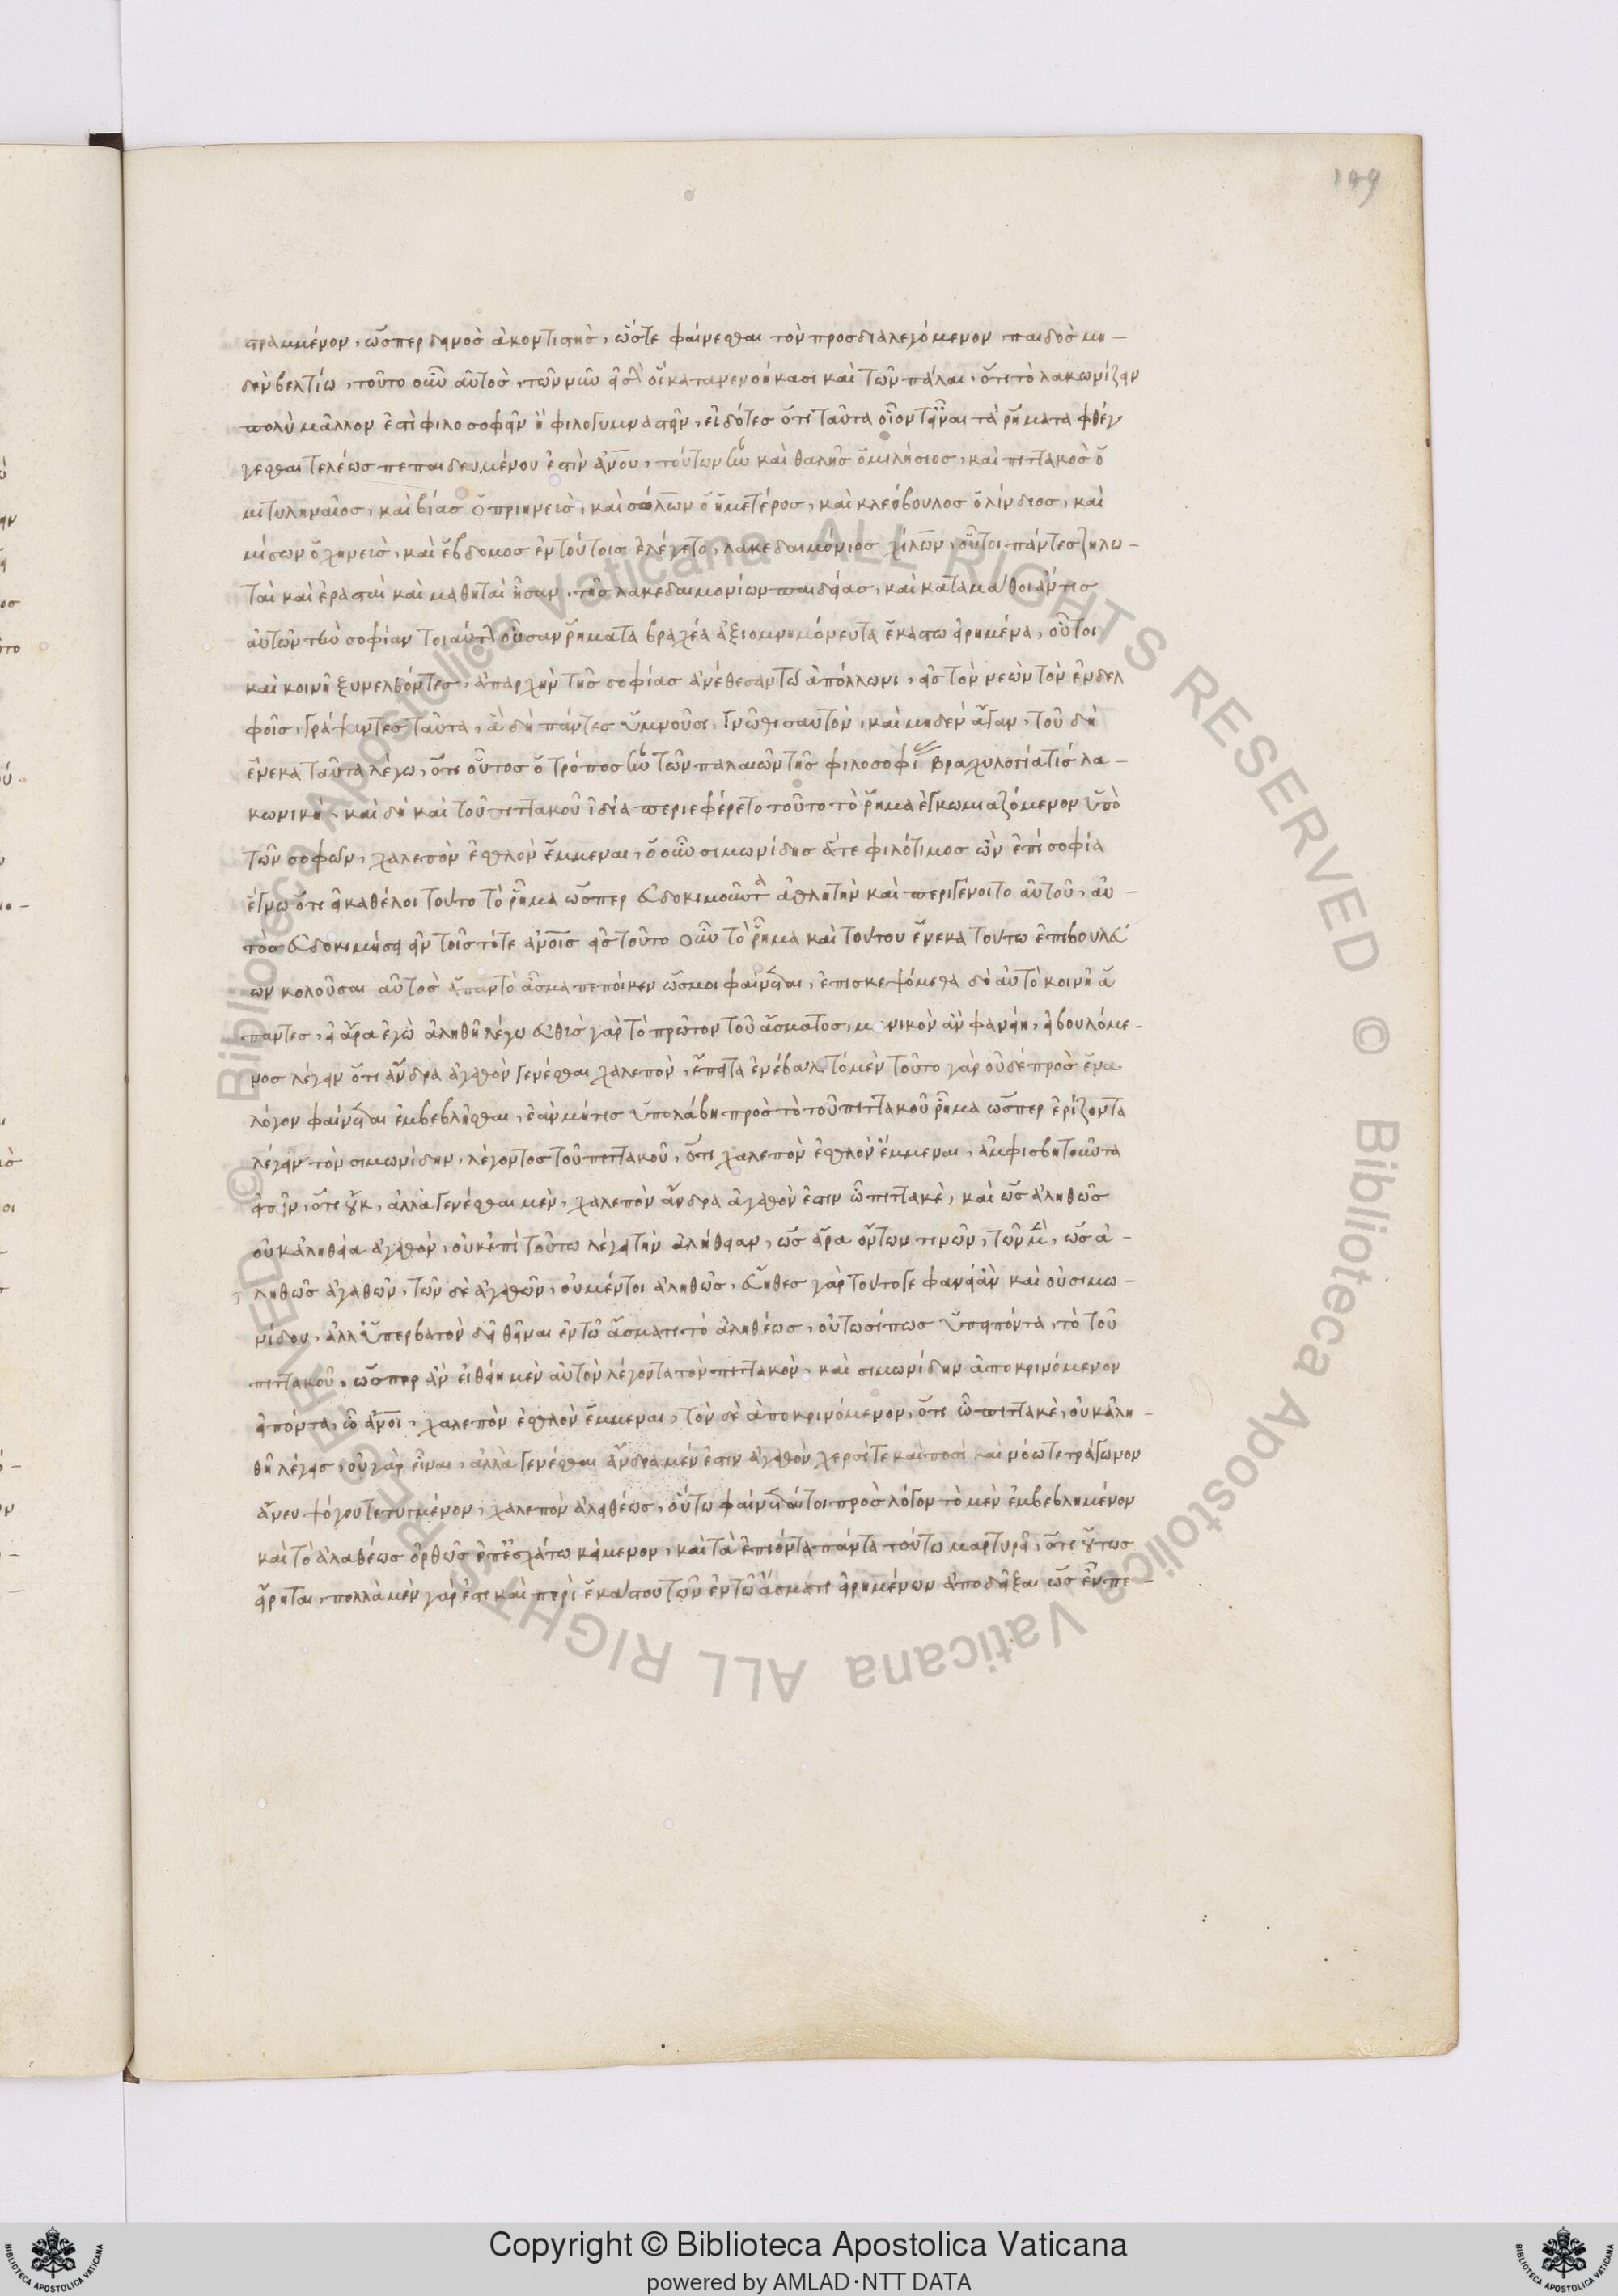 149
στραμμένον, ὥσπερ δεινὸσ ἀκοντιστὴσ, ὥστε φαίνεσθαι τὸν προσδιαλεγόμενον παιδὸσ μη-
δὲν βελτίω, τοῦτο οὖν αὐτὸσ, τῶν νῦν εἰσὶ οἳ κατανενοήκασι καὶ τῶν πάλαι, ὅτι τὸ λακωνίζειν
πολὺ μᾶλλον ἐστὶ φιλοσοφεῖν ἢ φιλογυμναστεῖν, εἰδότεσ ὅτι ταῦτα οἷον τ' εἶναι τὰ ῥήματα φθέγ
γεσθαι τελέωσ πεπαιδευμένου ἐστὶν ἀνου, τούτων ἦν καὶ θαλῆσ ὁ μιλήσιοσ, καὶ πιττακὸσ ὁ
μιτυληναῖοσ, καὶ βίασ ὁ πριηνεὶσ, καὶ σόλων ὁ ἡμετέροσ, καὶ κλεόβουλοσ ὁ λίνδιοσ, καὶ
μίσων ὁ χηνεὶσ, καὶ ἕβδομοσ ἐν τούτοισ ἐλέγετο, λακεδαιμόνιοσ χίλων, οὗτοι πάντεσ ζηλω-
ταὶ καὶ ἐρασταὶ καὶ μαθηταὶ ἦσαν, τῆσ λακεδαιμονίων παιδείασ, καὶ καταμάθοι ἄν τισ
αὐτῶν τὴν σοφίαν τοιαύτην οὖσαν ῥήματα βραχέα ἀξιομνημόνευτα ἑκάστω εἰρημένα, οὗτοι
καὶ κοινῆ ξυνελθόντεσ, ἀπαρχὴν τῆσ σοφίασ ἀνέθεσαν τῶ ἀπόλλωνι, εἰσ τὸν νεὼν τὸν ἐν δελ
φοῖσ, γράψαντεσ ταῦτα, ἃ δὴ πάντεσ ὑμνοῦσι, γνῶθι σαυτὸν, καὶ μηδὲν ἄγαν, τοῦ δὴ
ἕνεκα ταῦτα λέγω, ὅτι οὗτοσ ὁ τρόποσ ἦν τῶν παλαιῶν τῆσ φιλοσοφίασ βραχυλογία τίσ λα-
κωνικὴ, καὶ δὴ καὶ τοῦ πιττακοῦ ἰδία περιεφέρετο τοῦτο τὸ ῥῆμα ἐγκωμιαζόμενον ὑπὸ
τῶν σοφῶν, χαλεπὸν ἐσθλὸν ἔμμεναι, ὁ οὖν σιμωνίδησ ἅτε φιλότιμοσ ὢν ἐπὶ σοφία
ἔγνω ὅτι εἰ καθέλοι τοῦτο τὸ ῥῆμα ὥσπερ εὐδοκιμοῦντα ἀθλητὴν καὶ περιγένοιτο αὐτοῦ, αὐ-
τὸσ εὐδοκιμήσει ἐν τοῖσ τότε ἀνοισ εἰσ τοῦτο οὖν τὸ ῥῆμα καὶ τούτου ἕνεκα τούτω ἐπιβουλεύ
ων κολοῦσαι αὐτὸσ ἅπαν τὸ ἆσμα πεποίηκεν ὥσ μοι φαίνεται, ἐπισκεψόμεθα δὴ αὐτὸ κοινῆ ἅ
παντεσ, εἰ ἄρα ἐγὼ ἀληθῆ λέγω εὐθὺσ γὰρ τὸ πρῶτον τοῦ ἄσματοσ, μανικὸν ἂν φανείη, εἰ βουλόμε-
νοσ λέγειν ὅτι ἄνδρα ἀγαθὸν γενέσθαι χαλεπὸν, ἔπειτα ἐνέβαλε τὸ μὲν τοῦτο γὰρ οὐδὲ πρὸσ ἕνα
λόγον φαίνεται ἐμβεβλῆσθαι, ἐὰν μήτισ ὑπολάβη πρὸσ τὸ τοῦ πιττακοῦ ῥῆμα ὥσπερ ἐρίζοντα
λέγειν τὸν σιμωνίδην, λέγοντοσ τοῦ πιττακοῦ, ὅτι χαλεπὸν ἐσθλὸν ἔμμεναι, ἀμφισβητοῦντα
εἰπεῖν, ὅτι οὐκ, ἀλλὰ γενέσθαι μὲν, χαλεπὸν ἄνδρα ἀγαθὸν ἐστιν ὦ πιττακὲ, καὶ ὡσ ἀληθῶσ
οὐκ ἀληθεία ἀγαθὸν, οὐκ ἐπὶ τούτω λέγει τὴν ἀλήθειαν, ὡσ ἄρα ὄντων τινῶν, τῶν μὲν, ὡσ ἀ-
ληθῶσ ἀγαθῶν, τῶν δὲ ἀγαθῶν, οὐ μέντοι ἀληθῶσ, εὔηθεσ γὰρ τοῦτο γε φανείη ἂν καὶ οὐ σιμω-
νίδου, ἀλλ' ὑπερβατὸν δεῖ θεῖναι ἐν τῶ ἄσματι τὸ ἀληθέωσ, οὑτωσί πωσ ὑπειπόντα, τὸ τοῦ
πιττακοῦ, ὥσπερ ἂν εἰ θείημεν αὐτὸν λέγοντα τὸν πιττακὸν, καὶ σιμωνίδην ἀποκρινόμενον
εἰπόντα, ὦ ἀνοι, χαλεπὸν ἐσθλὸν ἔμμεναι, τὸν δὲ ἀποκρινόμενον, ὅτι ὦ πιττακὲ, οὐκ ἀλη-
θῆ λέγεισ, οὐ γὰρ εἶναι, ἀλλὰ γενέσθαι ἄνδρα μέν ἐστιν ἀγαθὸν χερσί τε καὶ ποσὶ καὶ νόω τετράγωνον
ἄνευ ψόγου τετυγμένον, χαλεπὸν ἀλαθέωσ, οὕτω φαίνεται τοι πρὸσ λόγον τὸ μὲν ἐμβεβλημένον
καὶ τὸ ἀλαθέωσ ὀρθῶσ ἐπ' ἐσχάτω κείμενον, καὶ τὰ ἐπιόντα πάντα τούτω μαρτυρεῖ, ὅτι οὕτωσ
εἴρηται, πολλὰ μὲν γάρ ἐστι καὶ περὶ ἑκάστου τῶν ἐν τῶ ἄσματι εἰρημένων ἀποδεῖξαι ὡσ εὖ πε-
Copyright © Biblioteca Apostolica Vaticana
powered by AMLAD·NTT DATA